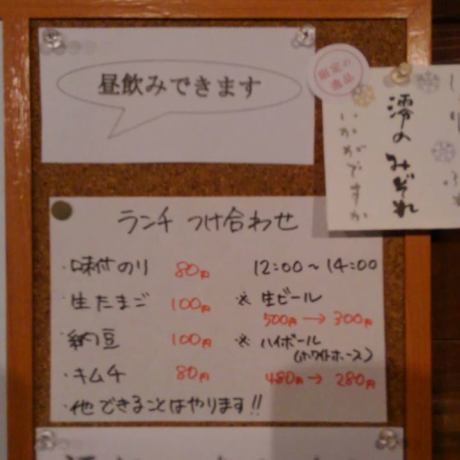 昼飲みできます
限定の
逸品
澪のみぞれ
いかがですか
ランチ つけ合わせ
・味付のり 80円 12:00〜14:00
・生たまご 100円 ※ 生ビール
500円 → 300円
・納豆 100円 ※ ハイボール
(ホワイトホース)
・キムチ 80円 480円 → 280円
・他できることはやります!!